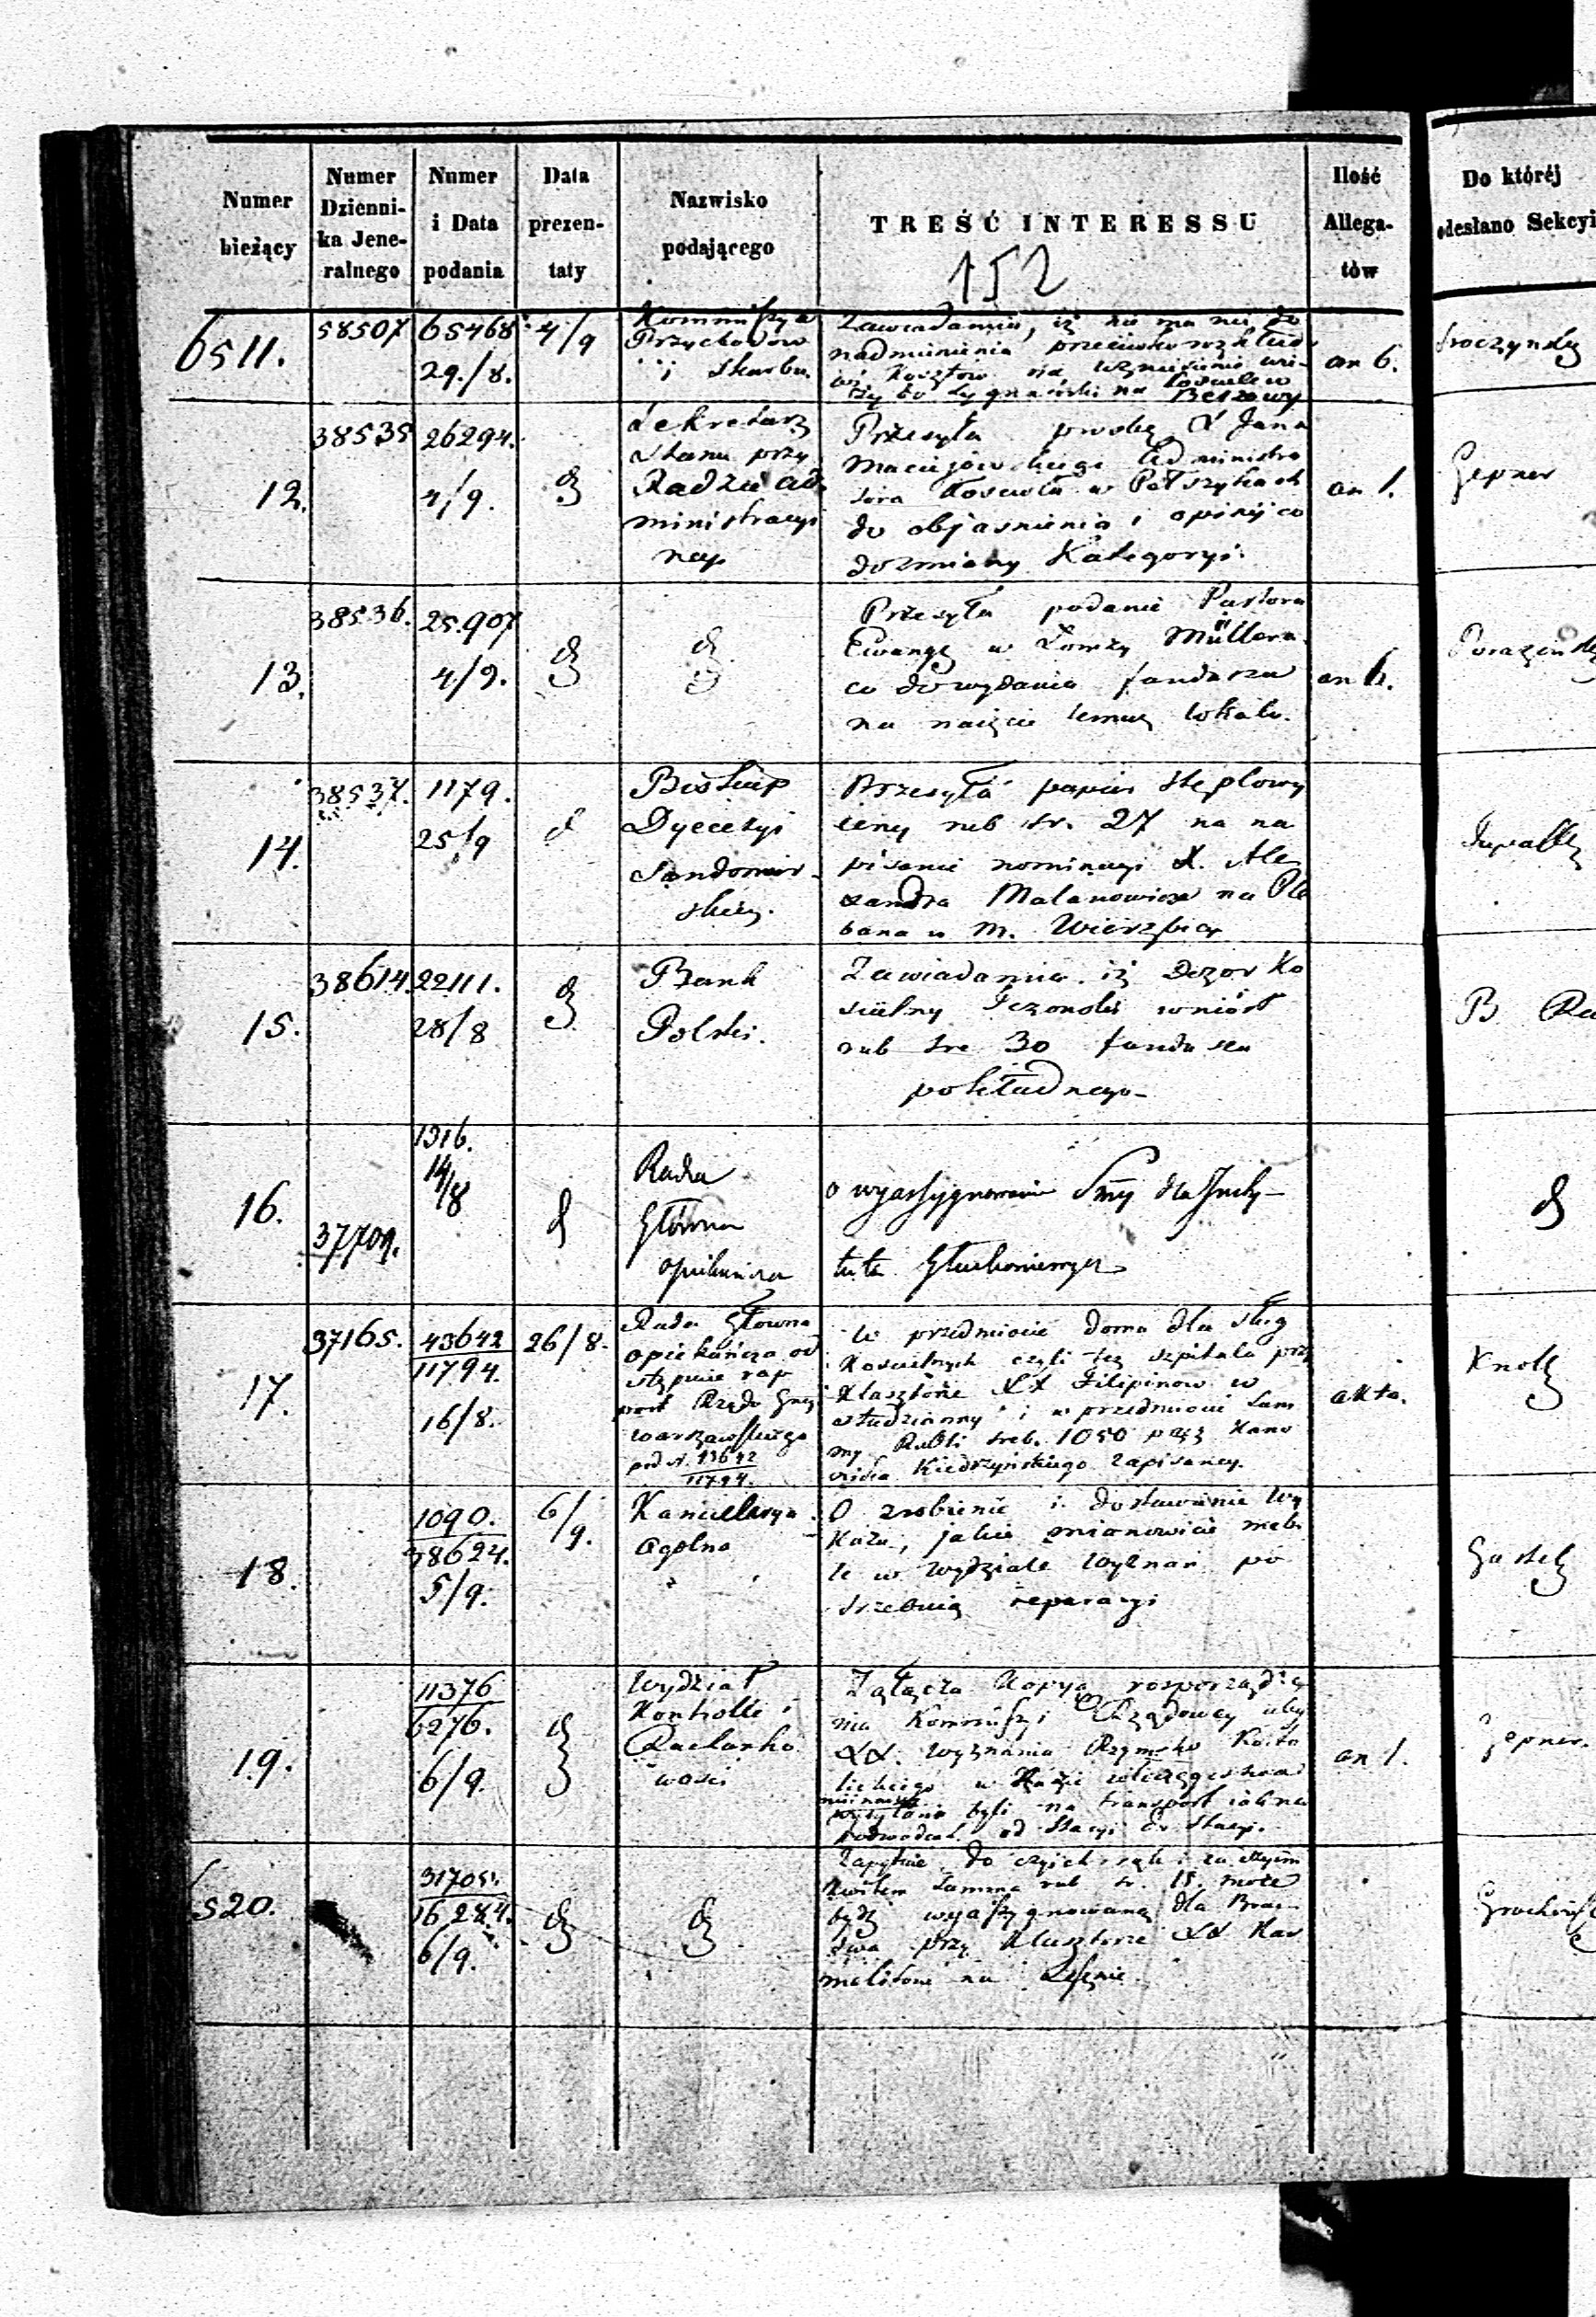 Numer
bieżący
Numer
Dzienni-
ka Jene-
ralnego
Numer
i Data
podania
Data
prezen-
taty
Nazwisko
podającego
TREŚĆ INTERESSU
Ilość
Allega-
tów
Do któréj
odesłano Sekcyi
152
6511.
58507
65468
29./8.
4/9
Kommissya
Przychodów
i Skarbu.
Zawiadamia, iż nie ma nic do
nadmienienia przeciwko rozkładowi
Kosztów na wzniesienie wie-
ży do sygnaturki na kościele w
an 6.
12.
38535
26294.
4/9.
Sekretarz
Stanu przy
Radzie Ad-
ministracyj
nej
Przesyła prośbę X Jana
Maciejowskiego Administra
tora Kościoła w
do objaśnienia i opinij co
do zmiany Kategoryi.
an 1.
Gepner
13.
38536.
25.907
4/9.
Przesyła podanie Pastora
Ewang. w Łomży Müllera
co do wydania funduszu
na najęcie temuż lokalu.
an 6.
14.
38537.
1179.
25/9
Biskup
Dyecezyi
Sandomir-
skiey.
Przesyła papier steplowy
ceny rub sr. 27 na na
pisanie nominacyi X. Ale
xandra Malanowicza na Ple
bana w m. Wierzbicy
15.
38614.
22111.
28/8
Bank
Polski.
Zawiadamia iż Dozor Ko
ścielny wniósł
rub sre 30 fundusu
pokładnego-
B
16.
37709.
1316.
14/8
Rada
Główna
opiekuńcza
o wyassygnowanie Summy dla Insty-
tutu Głuchoniemych
17.
37165.
43642
11794.
16/8.
26/8.
Rada Głowna
opiekuńcza od
stępuie rap
port Rządu Gub
warszawskiego
pod N. 43642
11794.
W przedmiocie domu dla sług
Kościelnych czyli też szpitala przy
Klasztorze XX Filipinow w
Studzianny i w przedmiocie Sum
my Rubli sreb. 1050 przez Kano
nika Kiedrzyńskiego zapisaney.
akta.
Knoll
18.
1090.
38624.
5/9.
6/9.
Kancellarya
Ogolna
O zrobienie i dostawienie Wy
kazu, jakie mianowicie meb
le w Wydziale Wyznań po
trzebuią reparacyi
19.
11376
6276.
6/9.
Wydział
Kontrolli i
Rachunko
wości
Załącza Kopyą rosporządze
nia Kommissyi Rządowey aby
XX. wyznania Rzymsko Kato
lickiego w Razie
wysyłani byli na transport
podwodach od Stacyi do Stacyi.
an 1.
Gepner.
520.
31705.
16284.
6/9.
Zapytuie do czyich rąk i za czyim
Kwitem Summa rub sr. 15. może
bydź wyassygnowaną dla Brac-
twa przy Klasztorze XX Kar
melitow na Lesznie.